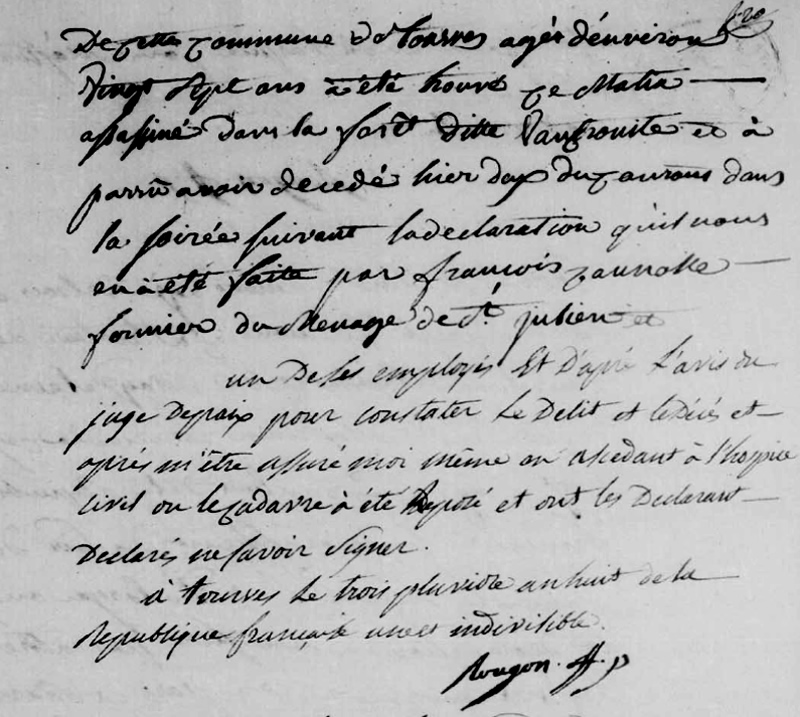 De cette Commune de tourves agée d'énviron
vingt sept ans à été trouvé Ce Matin
assassiné dans la forêt ditte et à
parru avoir decedé hier deux du Courans dans
la soirée suivant la declaration qu'il nous
en à été faitte par françois
fermier du Menage de St. julien et
un De ses employés Et D'apré L'avis du
juge De paix pour constater Le Delit et le Décés et
aprés m'être assuré moi même en assedant à l'hospice
Civil ou le Cadavre à été Deposé et ont les Declarant
Declarés ne savoir signer.
à tourves Le trois pluviose an huit de la
Republique française une et indivisible.
Rougon